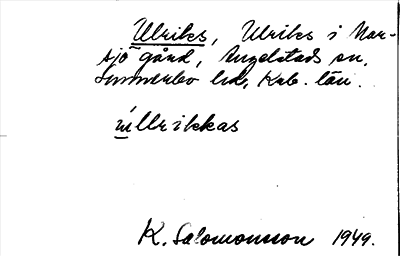 Ulriks, Ulriks i Mar-
sjö gård, Angelstads sn,
Sunnerbo hd, Krb. län.
úllrikkas
K. Salomonsson 1949.